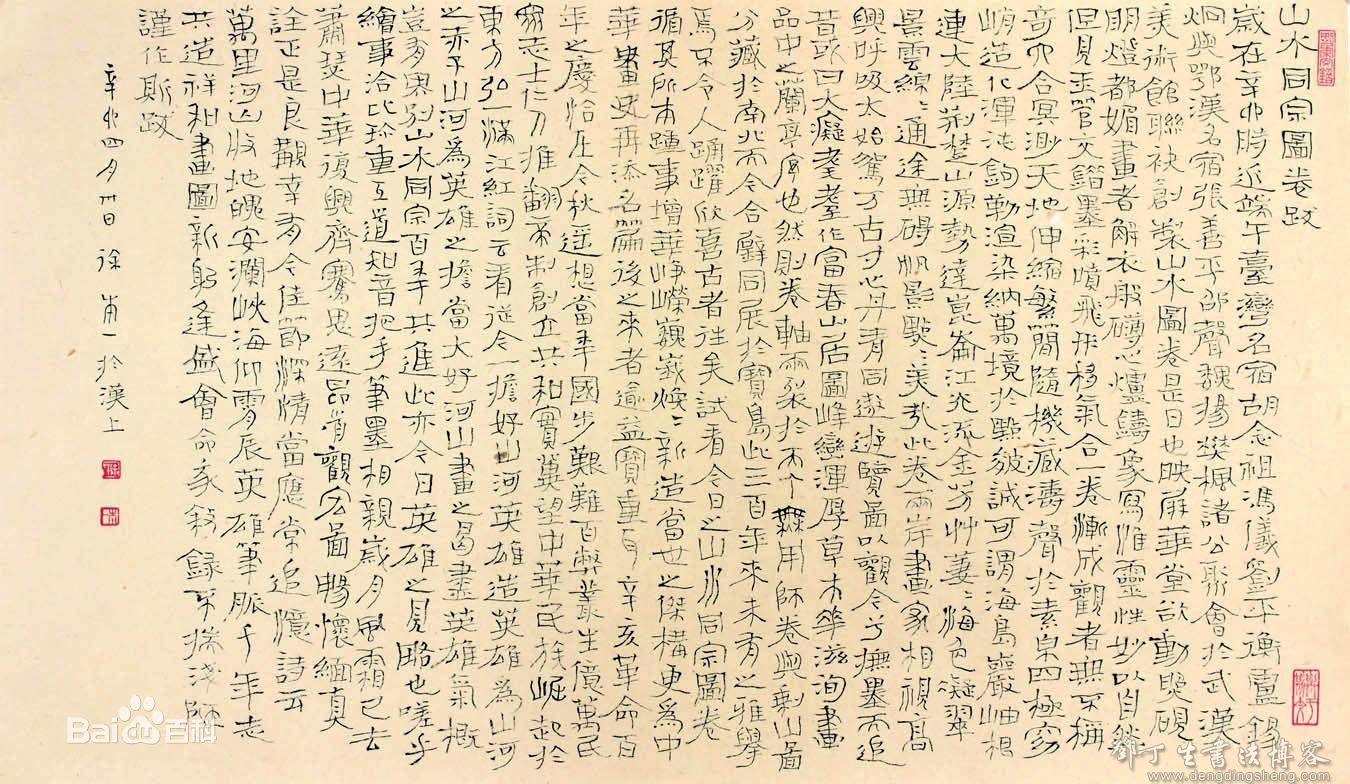 山水同宗圖卷跋
歲在辛卯時近端午臺灣名宿胡念祖馮儀劉平衡盧錫
炯與鄂漢名宿張善平邵聲魏揚樊楓諸公聚會於武漢
美術館聯袂創製山水圖卷是日也映屏華堂欲動熨硯
明燈都媚畫者解衣般礴心爐鑄象寫惟靈性妙以自然
但見玉管交錯墨彩噴飛形移氣合一卷漸成觀者無不稱
奇六合冥渺天地伸縮繁簡隨機藏濤聲於素帛四極窈
峭造化渾沌鉤勒渲染納萬境於點皴誠可謂海島巖岫相
連大陸荊楚山源勢達崑崙江流流金芳艸萋萋海色凝翠
景雲綿綿通途無礙帆影點點美哉此卷兩岸畫家相視高
興呼吸太始駕萬古寸心丹青同遊遊覽圖以觀今兮撫墨而追
昔或曰大癡老耄作富春山居圖峰巒渾厚草木華滋洵畫
品中之蘭亭序也然則卷軸而裂於不个無用師卷與剩山圖
分藏於南北而今合璧同展於寶島此三百年來未有之雅舉
焉不令人踴躍欣喜古者往矣試看今日之山水同宗圖卷
循其所本踵事增華崢嶸巍峩煥煥新造當世之傑構更為中
華畫史再添名篇後之來者逾益寶重哥辛亥革命百
年之慶恰在今秋遥想當年國步艱難百弊叢生億萬民
眾志士仁刀推翻帝制創立共和實冀望中華民族崛起於
東方弘一滿江紅詞云看從今一擔好山河英雄造英雄為山河
之赤子山河為英雄之擔當大好河山畫之曷盡英雄氣概
豈有異別山水同宗百年共進此亦今日英雄之見略也嗟乎
繪事洽比珍重互道知音把手筆墨相親歲月風霜已去
蕭瑟中華復興齊騫思遠昂首觀宏圖暢懷緬真
詮正是良覯幸有今佳節深情當應常追憶詩云
萬里河山收地魄安瀾峽海仰霄辰英雄筆脈千年志
共造祥和畫圖新躬逢盛會命彖叙錄不揣淺陋
謹作斯跋
辛卯四月卅日徐本一於漢上
Bai百科
鄧丁生書法博客
www.dengdingsheng.com